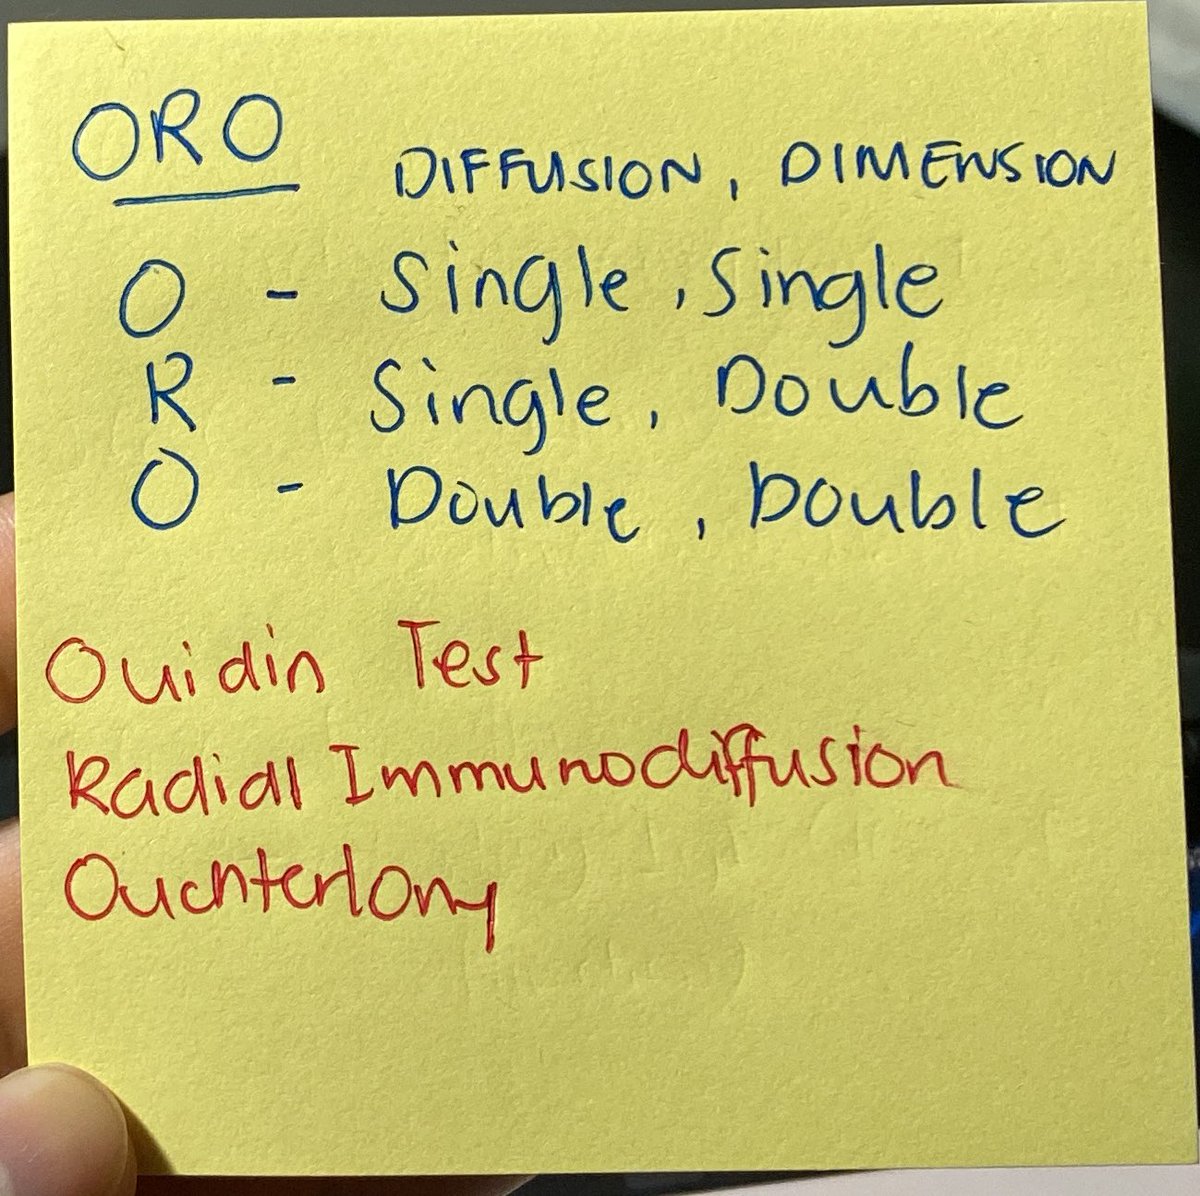 ORO DIFFUSION, DIMENSION
O - Single, Single
R - Single, Double
O - Double, Double
Ouidin Test
Radial Immunodiffusion
Ouchterlony